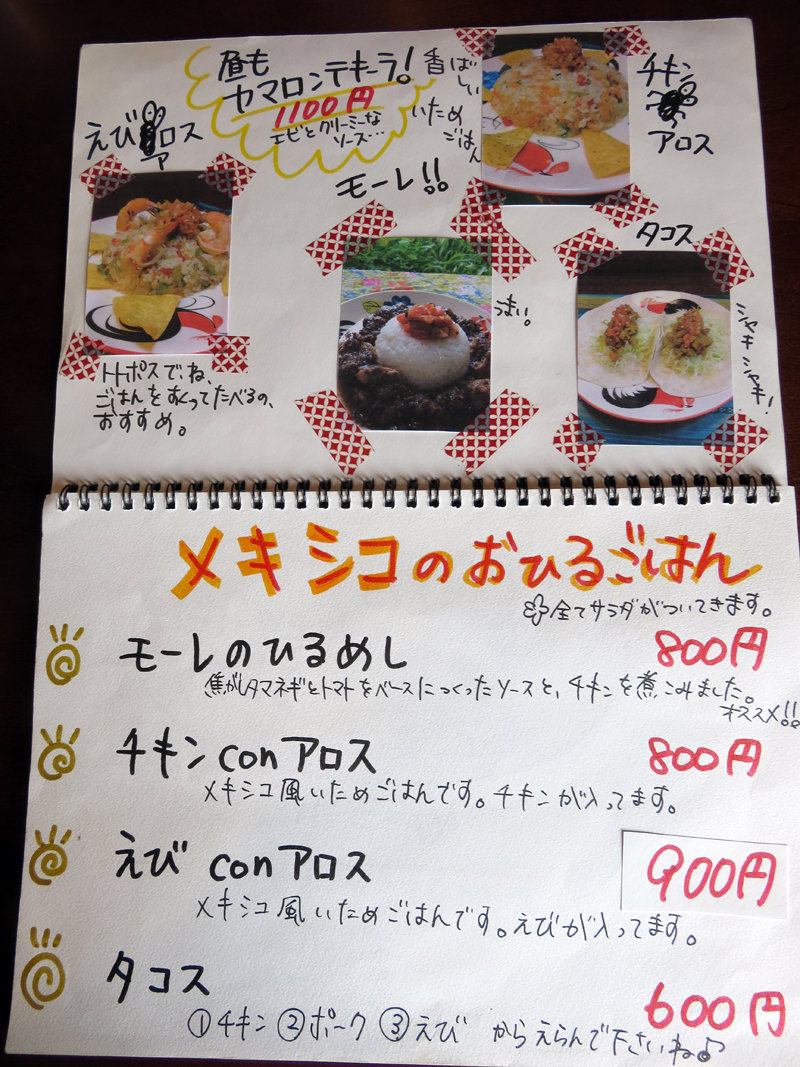 昼も
ヤマロンテキーラ!
1100円
エビとクリーミーな
ソース…
香ばしい
いため
ごはん
チキン
アロス
えび
アロス
モーレ!!
タコス
うまい。
シャキシャキ!
トトポスでね、
ごはんをすくってたべるの、
おすすめ。
メキシコのおひるごはん
全てサラダがついてきます。
モーレのひるめし 800円
焦がしタマネギとトマトをベースにつくったソースと、チキンを煮こみました。
オススメ!!
チキンconアロス 800円
メキシコ風いためごはんです。チキンが入ってます。
えび conアロス 900円
メキシコ風いためごはんです。えびが入ってます。
タコス 600円
①チキン ②ポーク ③えび からえらんで下さいね♪